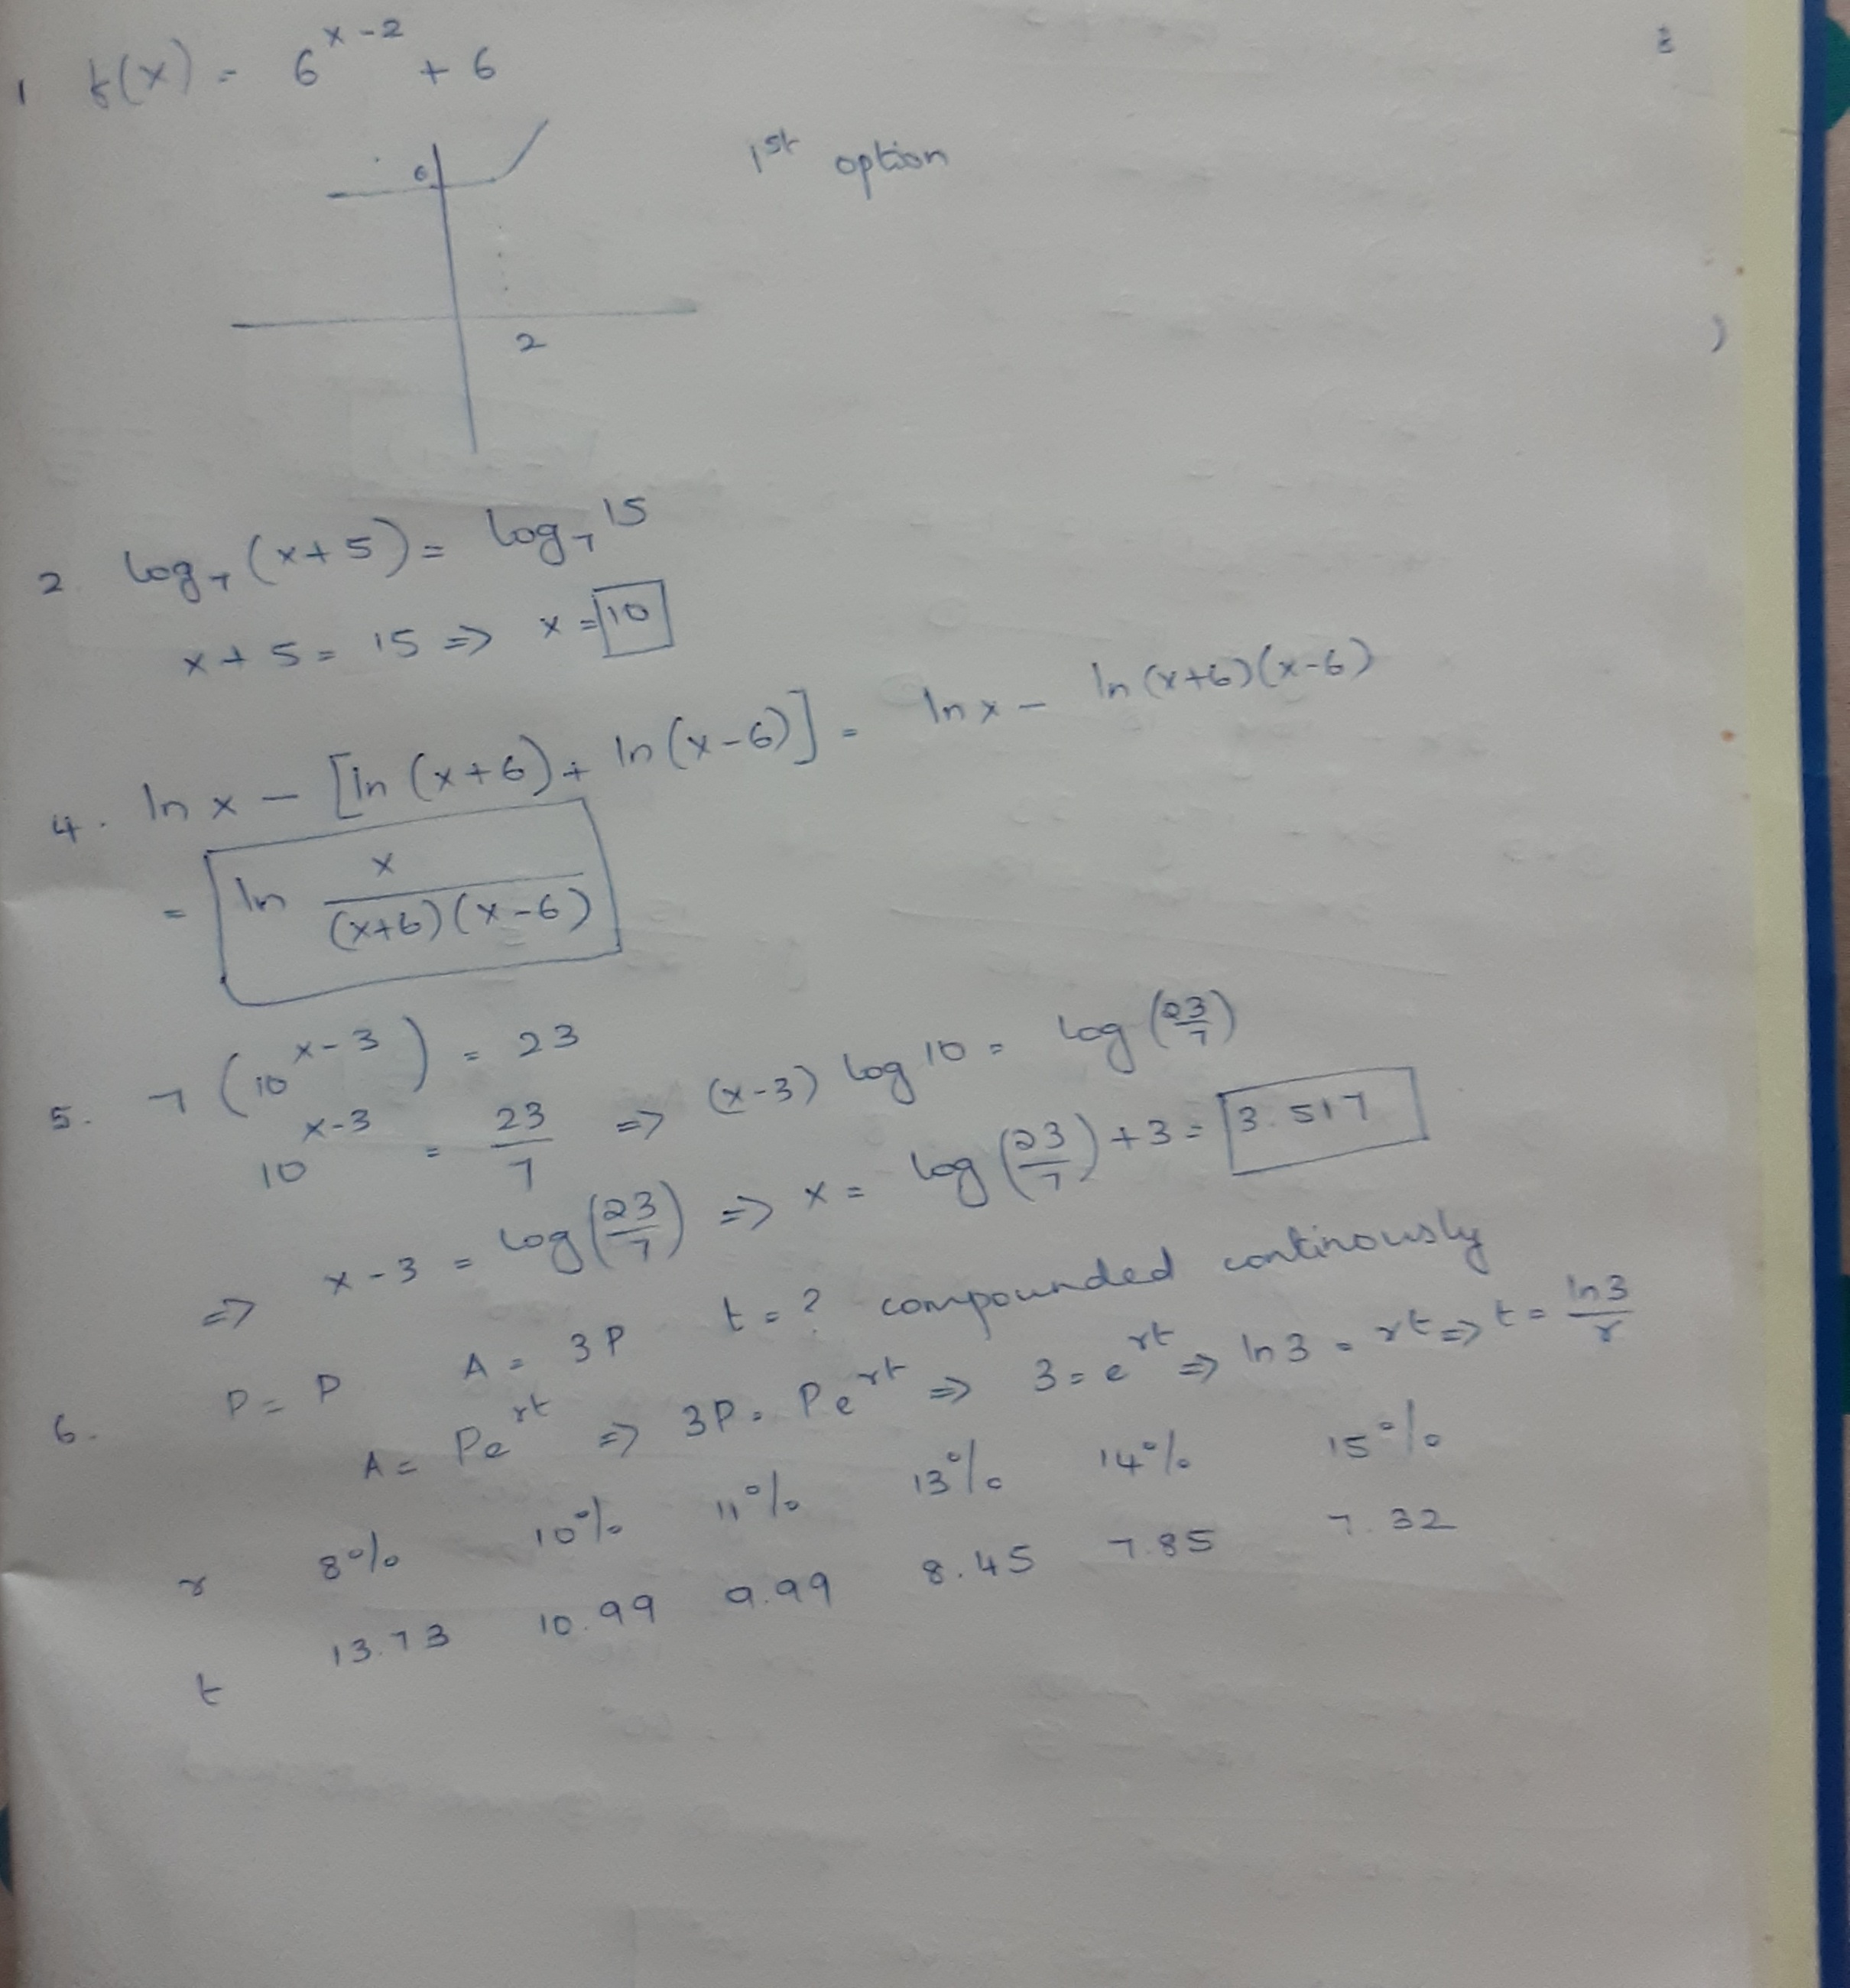 1 f(x) = 6^(x-2) + 6
6
1st option
2
2. log₇(x+5) = log₇15
x+5 = 15 => x = 10
4. ln x - [ln(x+6) + ln(x-6)] = ln x - ln(x+6)(x-6)
= ln x/((x+6)(x-6))
5. 7(10^(x-3)) = 23
10^(x-3) = 23/7 => (x-3) log 10 = log(23/7)
=> x-3 = log(23/7) => x = log(23/7) + 3 = 3.517
6. P = P A = 3P t = ? compounded continously
A = Pe^(rt) => 3P = Pe^(rt) => 3 = e^(rt) => ln 3 = rt => t = ln3/r
r 8% 10% 11% 13% 14% 15%
t 13.73 10.99 9.99 8.45 7.85 7.32